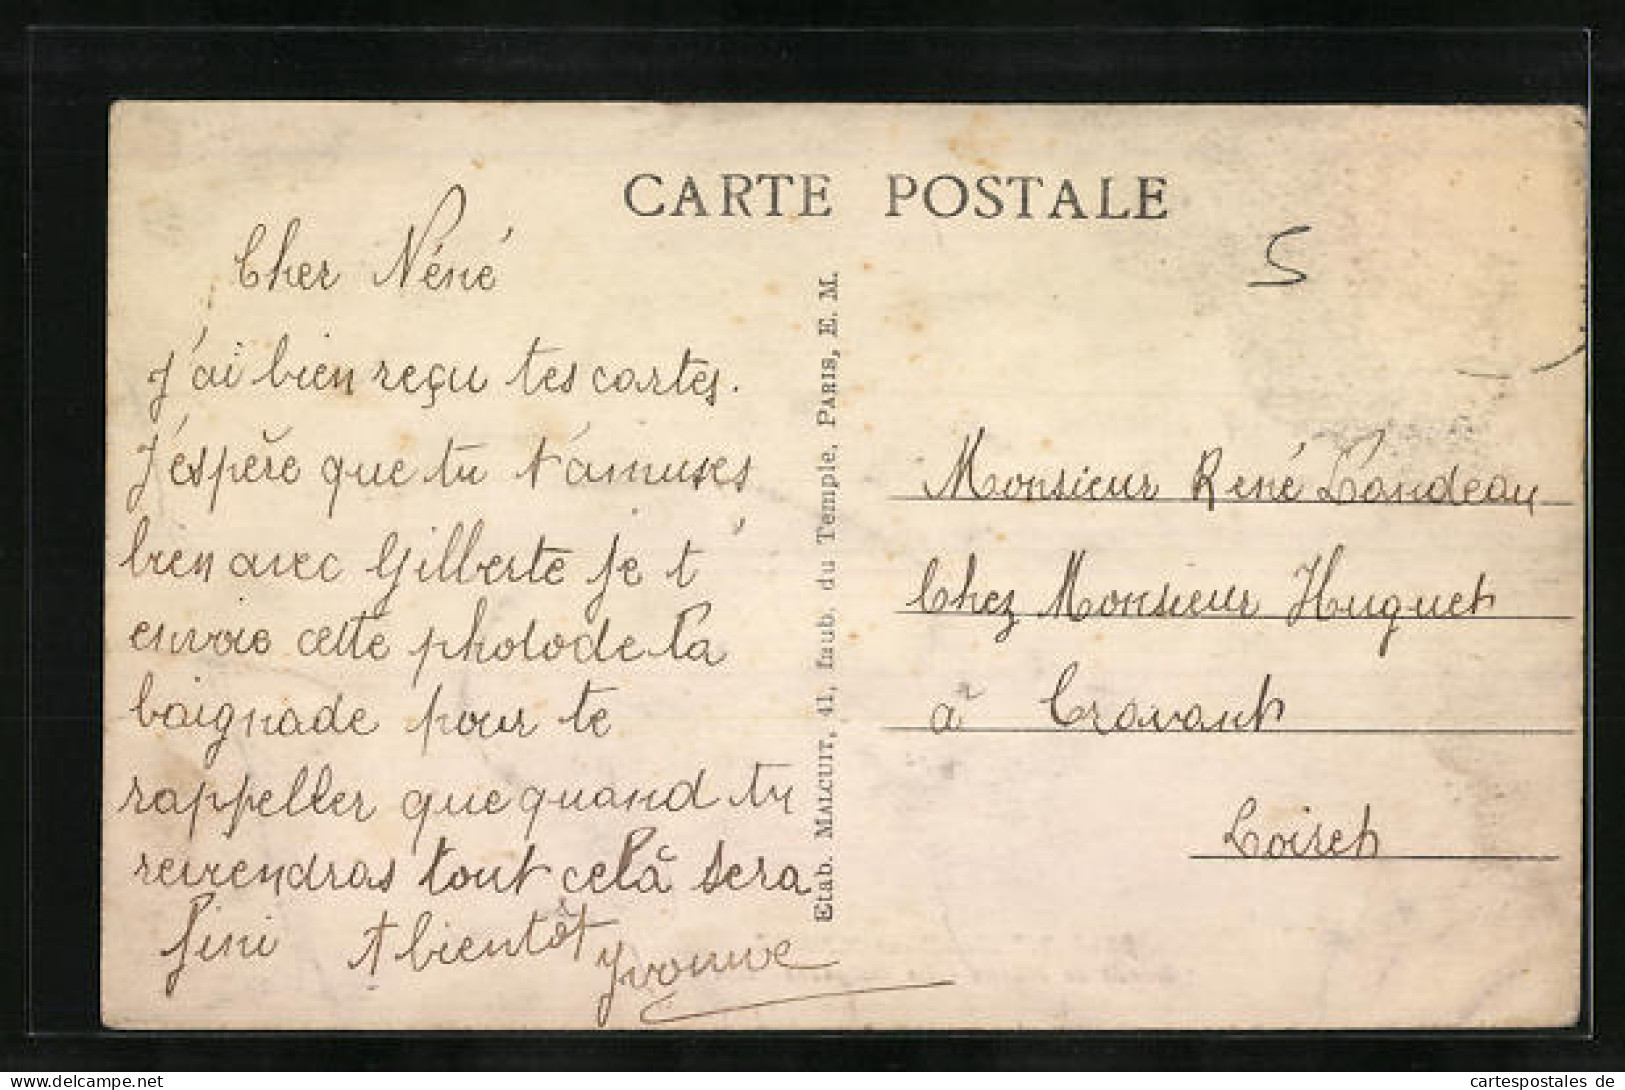 CARTE POSTALE
5
Cher Néné
J'ai bien reçu tes cartes.
J'espère que tu t'amuses
bien avec Gilberte je t'
envoie cette photo de la
baignade pour te
rappeller que quand tu
reviendras tout celà sera
fini A bientôt
Yvonne
Etab. MALCUIT, 41, faub. du Temple, PARIS, E. M.
Monsieur René Landeau
Chez Monsieur Huguet
à Cravant
Loiret
cartespostales de